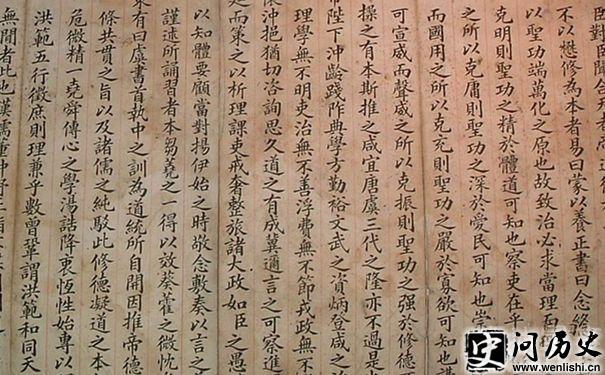 臣對臣聞合天者
不以懋修為本者易曰蒙以養正書曰念終
以聖功端萬化之原也故致治必求當理而
克明則聖功之精於體道可知也察吏在乎
之所以克庸則聖功之深於愛民可知也崇
而國用之所以克充則聖功之嚴於寡欲可知也
可宣威而聲威之所以克振則聖功之强於修德
操之有本斯推之咸宜唐虞三代之隆亦不過是
帝陛下沖齡踐阼典學方勤裕文武之資炳登咸之
理學無不明吏治無不善浮費無不節戎政無不
懷沖挹猶切咨詢思久道之有成冀邇言之可察進
之而策之以析理課吏戒奢整旅諸大政如臣之愚
以知體要顧當對揚伊始之時敬念敷奏以言之
謹述所誦習者本芻蕘之一得以效葵藿之微忱
來有曰虞書首執中之訓為道統所自開因推帝德
條共貫之旨以及諸儒之純駁此修德凝道之本
危微精一堯舜傳心之學湯誥降衷恆性始專以
洪範五行徵庶則理兼乎數曾鞏謂洪範和同天
無聞者此也漢儒董仲舒
问历史
www.wenlishi.cn